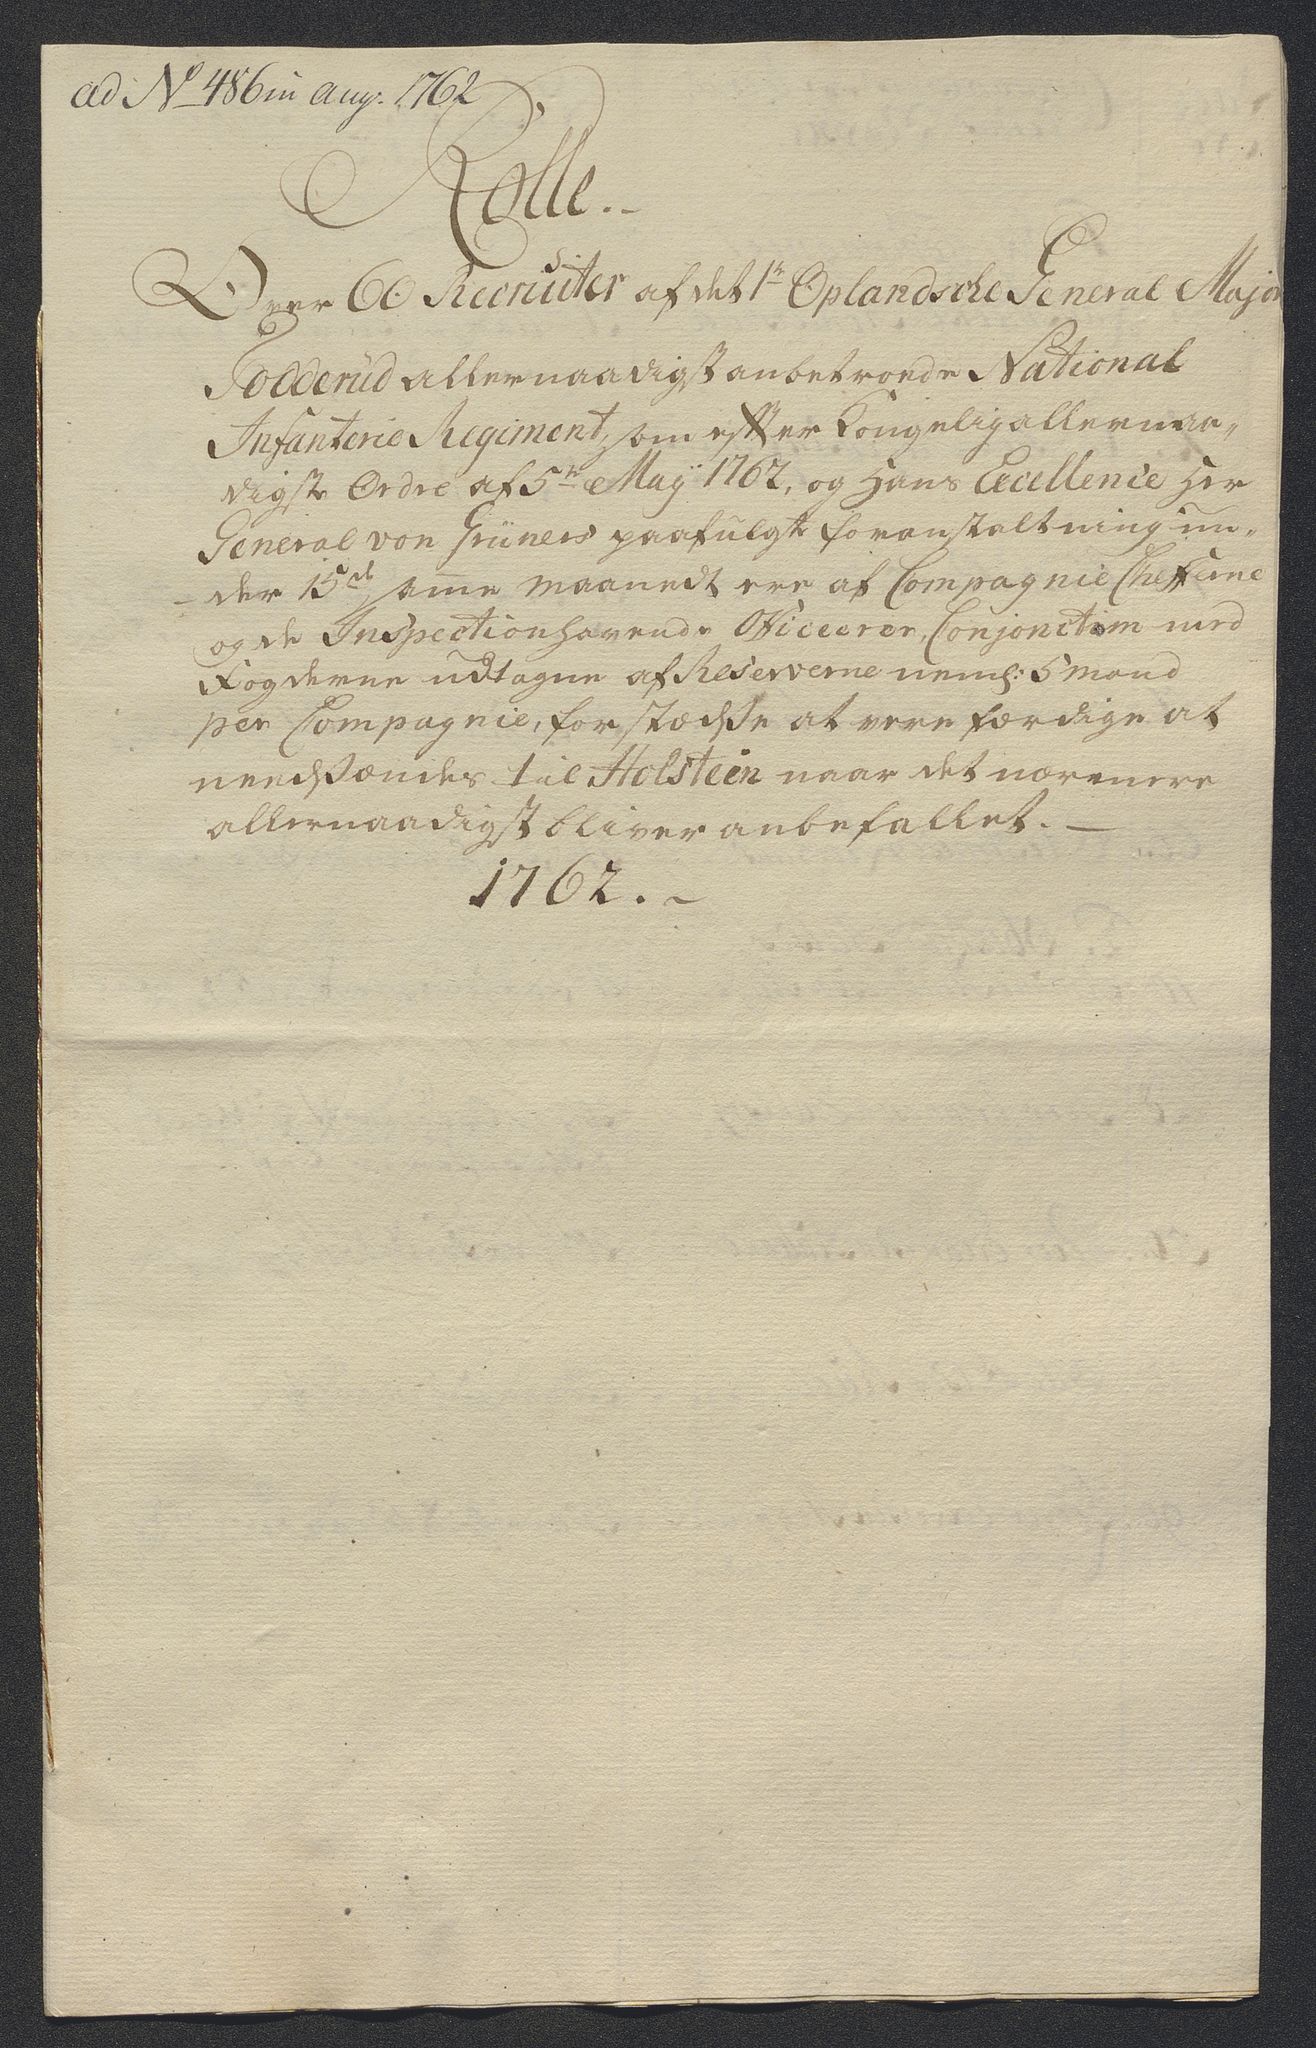 ad No 486 in Aug. 1762
Rolle.
Over 60 Recruiter af det 1te Oplandsche General Major
Todderud allernaadigst anbetroede National
Infanterie Regiment, som efter Kongelig allernaa-
digste Ordre af 5te May 1762, og Hans Excellence Her
General von Grüners paafulgte foranstaltning un-
der 15de same Maanedt ere af Compagnie Chefferne
og de Inspectionhavende Officeerer, Conjonctim med
Fogderne udtagne af Reserverne neml: 5 mand
per Compagnie, for stædse at være færdige at
needsændes til Holsteen naar det nærmere
allernaadigst bliver anbefallet.
1762.